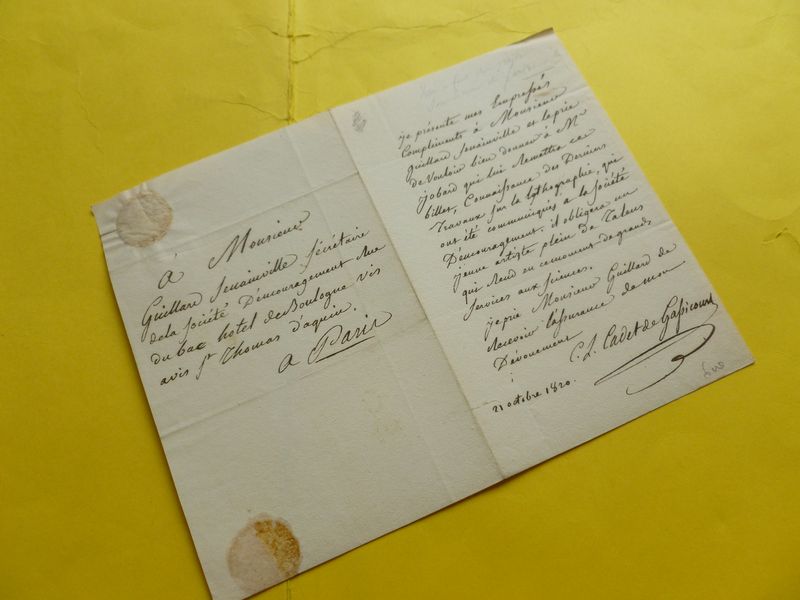 à Monsieur
Guillard Senainville Sécrétaire
de la Société D'encouragement Rue
du bac hotel de Boulogne Vis
avis St Thomas d'aquin.
a Paris
je présente mes Empressés
Compliments à Monsieur
Guillard Senainville et le prie
de Vouloir bien donner à Mr
jobard qui lui Remettra ce
billet, Connaissance des Derniers
Travaux sur la lythographie, que
ont été communiqués a la Société
D'encouragement. il obligera un
jeune artiste plein de Talens
qui Rend en ce moment de grands
Services aux Sciences.
je prie Monsieur Guillard de
Recevoir l'assurance de mon
Dévouement
C. L. Cadet de Gassicourt
21 octobre 1820.